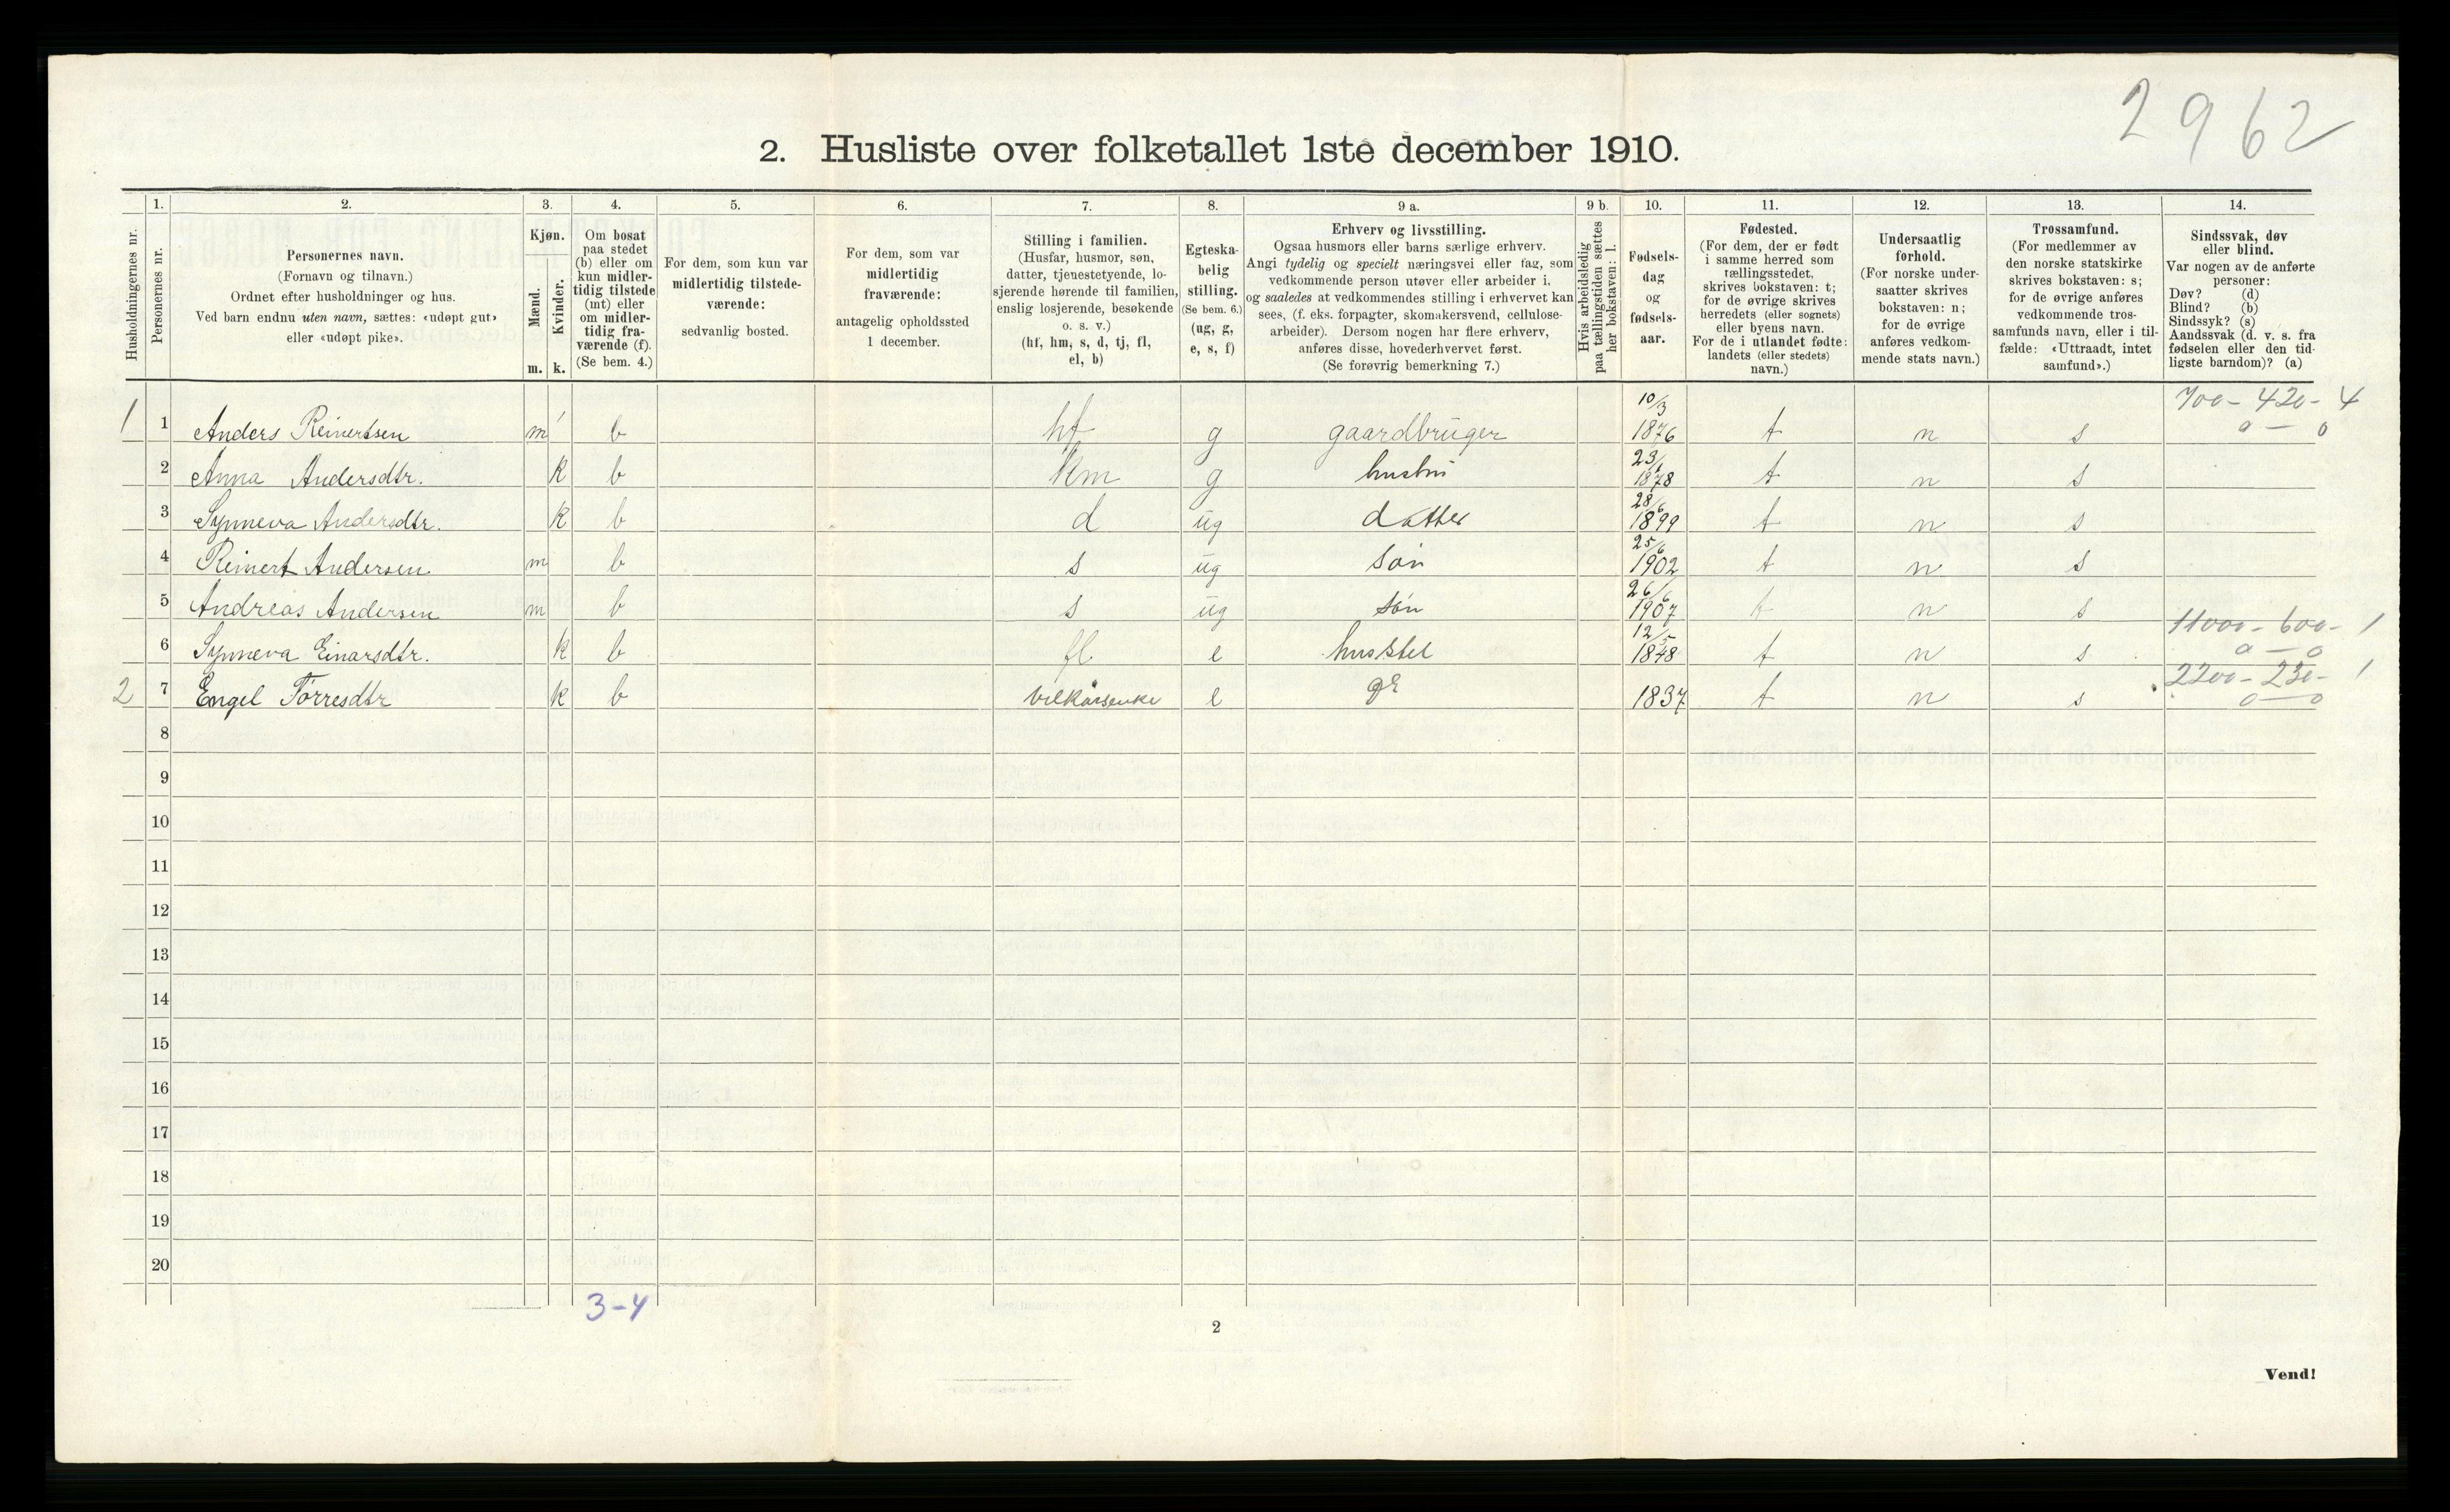 2962
2. Husliste over folketallet 1ste december 1910.
Husholdningernes nr.
1. 2. 3. 4. 5. 6. 7. 8. 9 a. 9 b. 10. 11. 12. 13. 14.
Personernes nr.
Personernes navn.
(Fornavn og tilnavn.)
Ordnet efter husholdninger og hus.
Ved barn endnu uten navn, sættes: «udøpt gut»
eller «udøpt pike».
Kjøn.
Mænd.
Kvinder.
m. k.
Om bosat
paa stedet
(b) eller om
kun midler-
tidig tilstede
(mt) eller
om midler-
tidig fra-
værende (f).
(Se bem. 4.)
For dem, som kun var
midlertidig tilstede-
værende:
sedvanlig bosted.
For dem, som var
midlertidig
fraværende:
antagelig opholdssted
1 december.
Stilling i familien.
(Husfar, husmor, søn,
datter, tjenestetyende, lo-
sjerende hørende til familien,
enslig losjerende, besøkende
o. s. v.)
(hf, hm, s, d, tj, fl,
el, b)
Egteska-
belig
stilling.
(Se bem. 6.)
(ug, g,
e, s, f)
Erhverv og livsstilling.
Ogsaa husmors eller barns særlige erhverv.
Angi tydelig og specielt næringsvei eller fag, som
vedkommende person utøver eller arbeider i,
og saaledes at vedkommendes stilling i erhvervet kan
sees, (f. eks. forpagter, skomakersvend, cellulose-
arbeider). Dersom nogen har flere erhverv,
anføres disse, hovederhvervet først.
(Se forøvrig bemerkning 7.)
Hvis arbeidsledig
paa tællingstiden sættes
her bokstaven: l.
Fødsels-
dag
og
fødsels-
aar.
Fødested.
(For dem, der er født
i samme herred som
tællingsstedet,
skrives bokstaven: t;
for de øvrige skrives
herredets (eller sognets)
eller byens navn.
For de i utlandet fødte:
landets (eller stedets)
navn.)
Undersaatlig
forhold.
(For norske under-
saatter skrives
bokstaven: n;
for de øvrige
anføres vedkom-
mende stats navn.)
Trossamfund.
(For medlemmer av
den norske statskirke
skrives bokstaven: s;
for de øvrige anføres
vedkommende tros-
samfunds navn, eller i til-
fælde: «Uttraadt, intet
samfund».)
Sindssvak, døv
eller blind.
Var nogen av de anførte
personer:
Døv? (d)
Blind? (b)
Sindssyk? (s)
Aandssvak (d. v. s. fra
fødselen eller den tid-
ligste barndom)? (a)
700 - 420 - 4
1 1 Anders Reinertsen m b hf g gaardbruger 10/3 1876 t n s 0 — 0
2 Anna Andersdtr. k b hm g hustru 1878 t n s
3 Synneva Andersdtr. k b d ug datter 28/6 1899 t n s
4 Reinert Andersen m b s ug søn 25/6 1902 t n s
5 Andreas Andersen m b s ug søn 26/6 1907 t n s
11000 - 600 - 1
6 Synneva Einarsdtr. k b fl e husstel 12/5 1848 t n s 0 — 0
2200 - 230 - 1
2 7 Engel Torresdtr k b vilkårsenke e 1837 t n s 0 — 0
8
9
10
11
12
13
14
15
16
17
18
19
20
3-4
2
Vend!